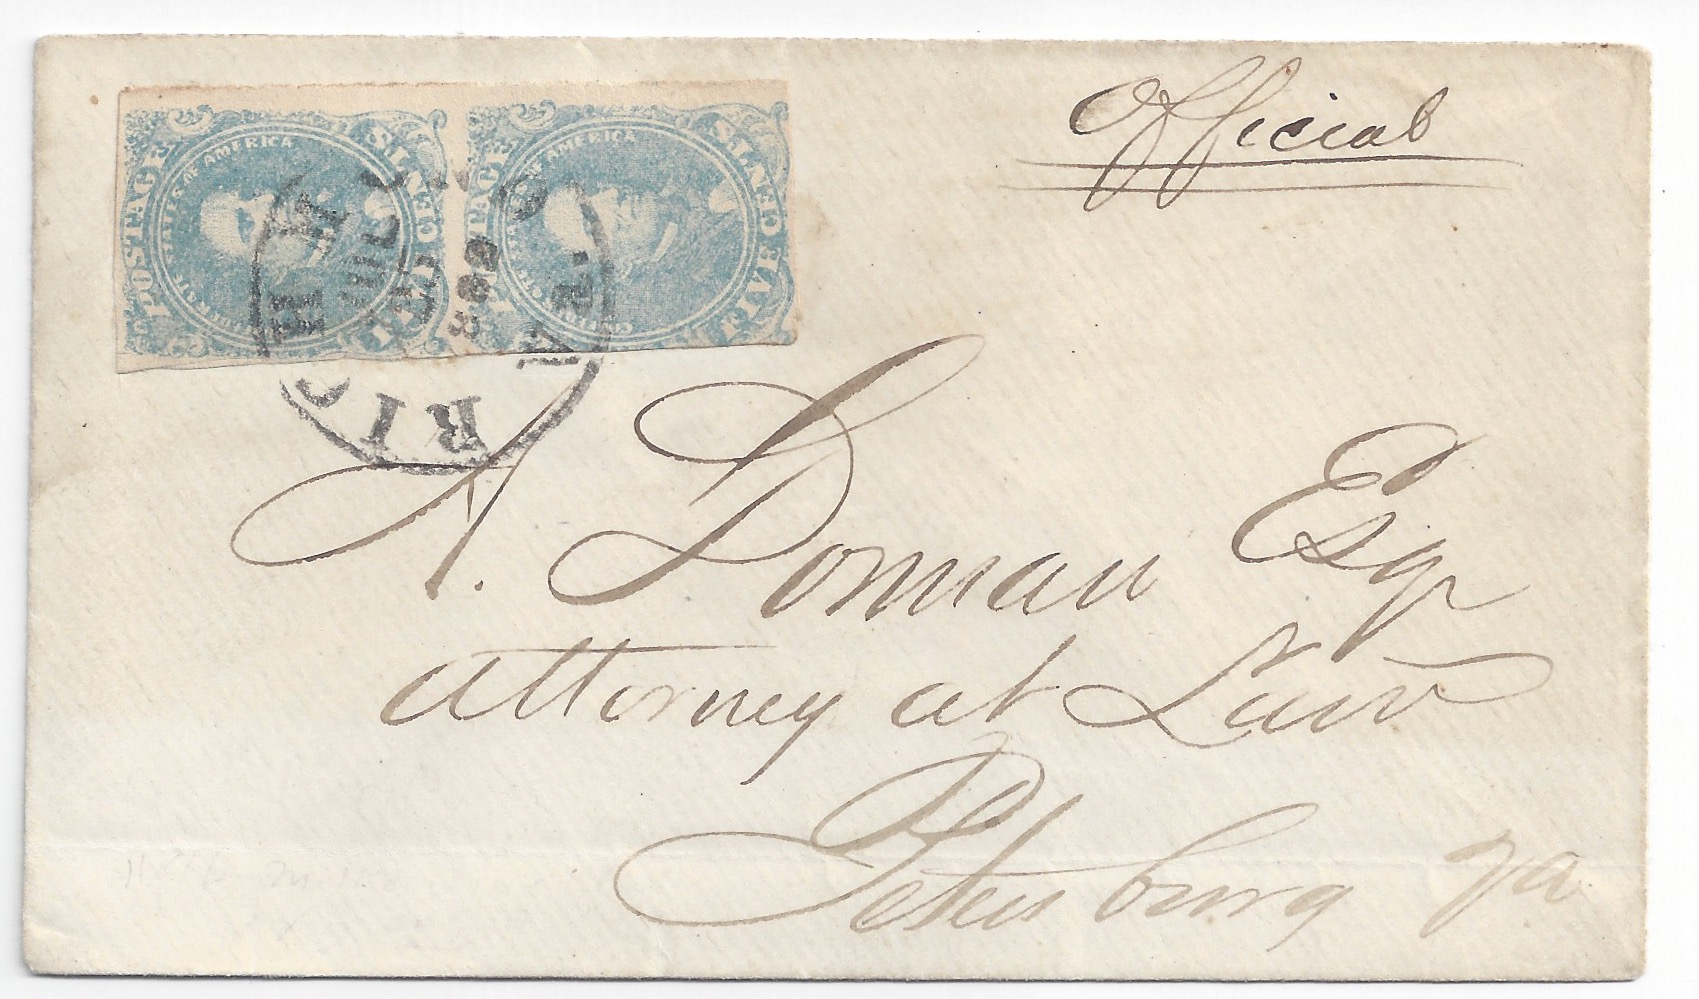 Official
POSTAGE
CONFEDERATE STATES OF AMERICA
FIVE CENTS
POSTAGE
CONFEDERATE STATES OF AMERICA
FIVE CENTS
RICHM Va.
JUL
1862
A. Donnan Esqr
Attorney at Law
Petersburg Va